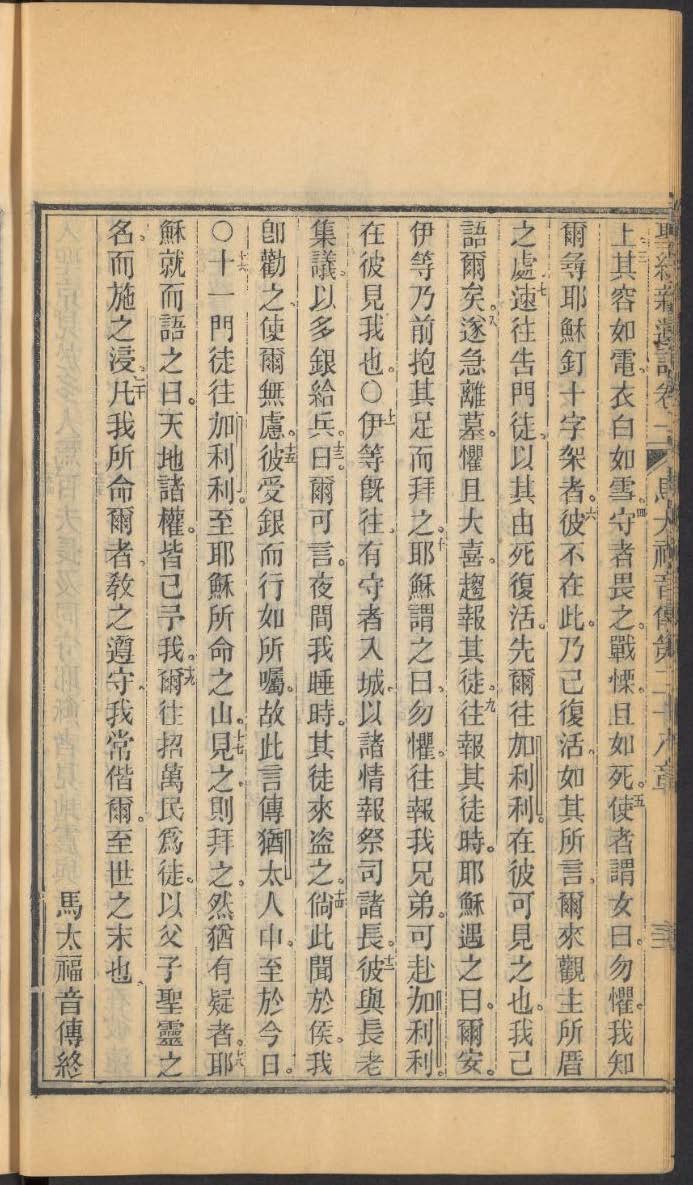 聖經新遺詔卷一 馬太福音傳第二十八章
上其容如電衣白如雪四守者畏之戰慄且如死五使者謂女曰勿懼我知
爾尋耶穌釘十字架者六彼不在此乃已復活如其所言爾來觀主所厝
之處七速往告門徒以其由死復活先爾往加利利在彼可見之也我已
語爾矣八遂急離墓懼且大喜趨報其徒九往報其徒時耶穌遇之曰爾安
伊等乃前抱其足而拜之十耶穌謂之曰勿懼往報我兄弟可赴加利利
在彼見我也〇十一伊等既往有守者入城以諸情報祭司諸長十二彼與長老
集議以多銀給兵十三曰爾可言夜間我睡時其徒來盗之十四倘此聞於侯我
卽勸之使爾無慮十五彼受銀而行如所囑故此言傳猶太人中至於今日
〇十六十一門徒往加利利至耶穌所命之山十七見之則拜之然猶有疑者十八耶
穌就而語之曰天地諸權皆已予我十九爾往招萬民爲徒以父子聖靈之
名而施之浸二十凡我所命爾者敎之遵守我常偕爾至世之末也
馬太福音傳終